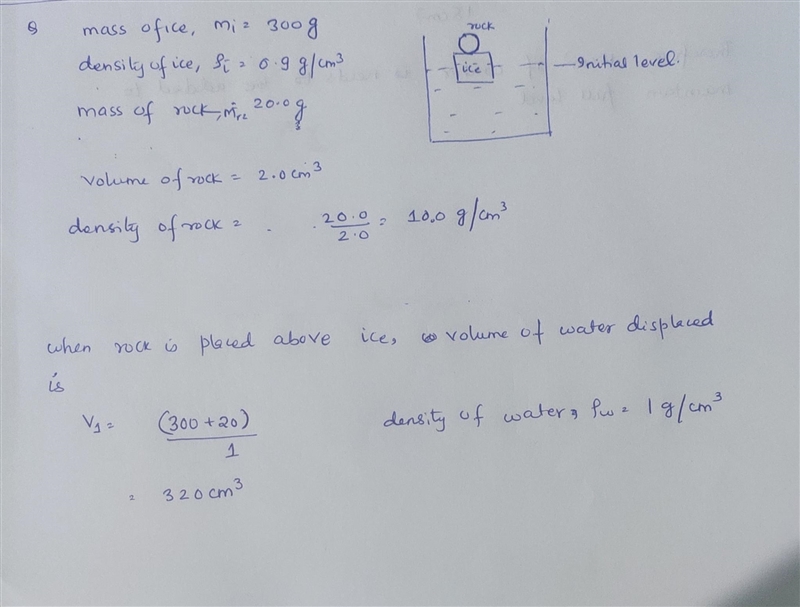 Q mass of ice, mi = 300g
rock
density of ice, ρi = 0.9 g/cm³
ice
Initial level.
mass of rock, mr = 20.0 g
volume of rock = 2.0 cm³
density of rock = 20.0/2.0 = 10.0 g/cm³
when rock is placed above ice, volume of water displaced
is
V1 = (300 + 20)/1
density of water, ρw = 1 g/cm³
= 320 cm³